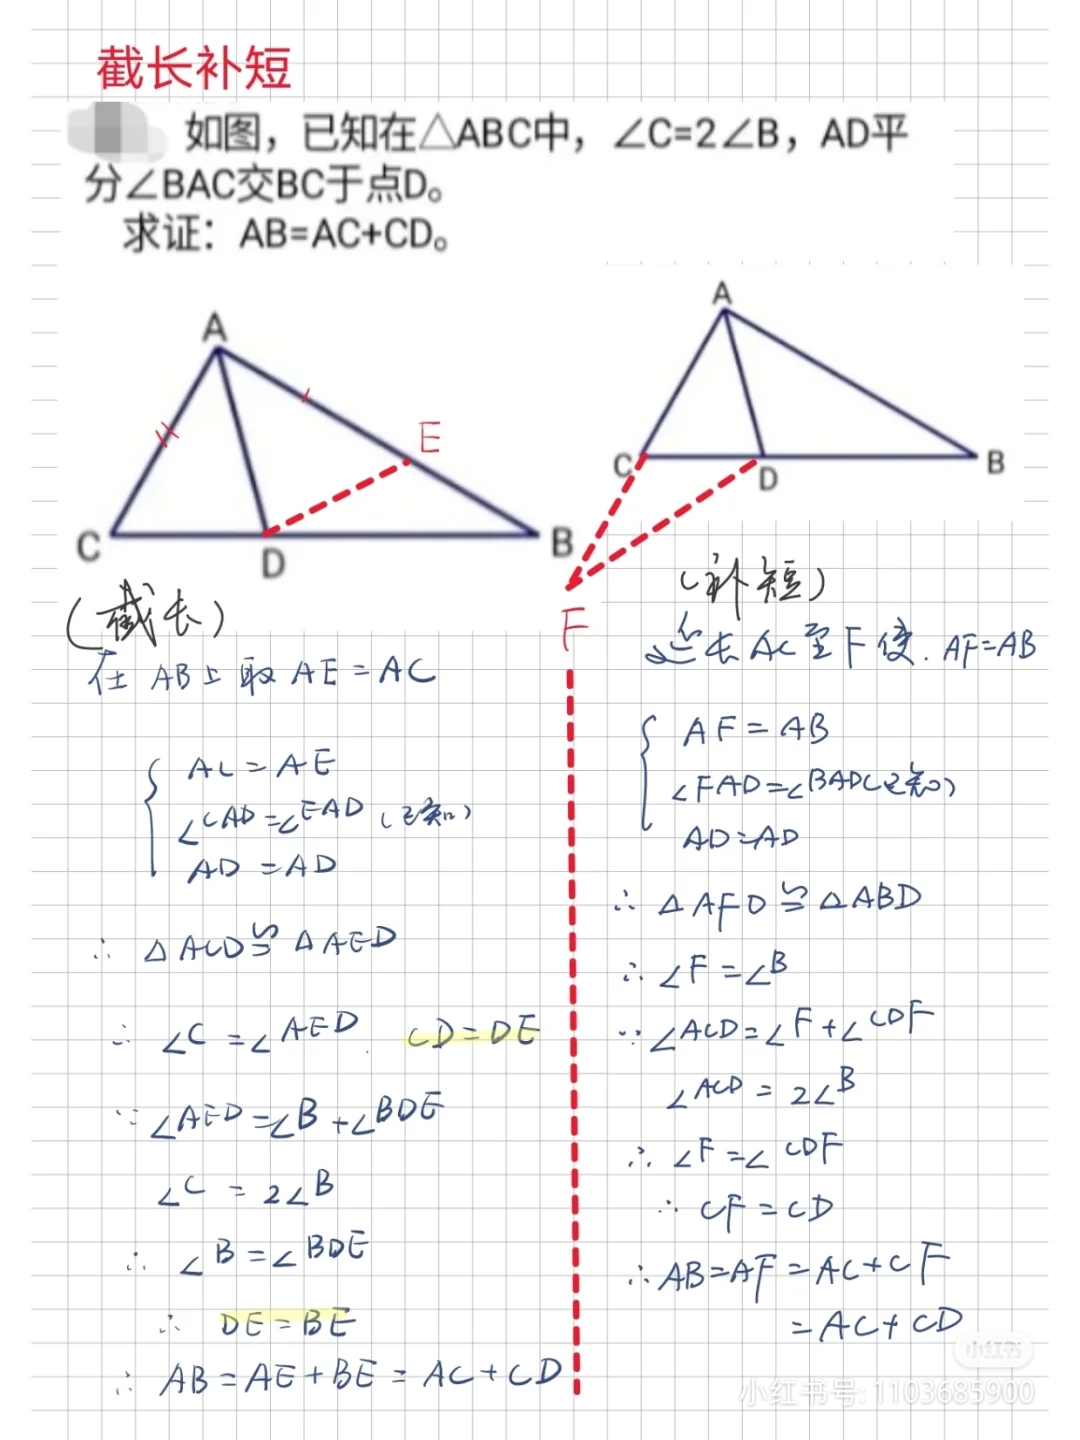 截长补短
如图，已知在△ABC中，∠C=2∠B，AD平
分∠BAC交BC于点D。
求证：AB=AC+CD。
A
E
C
D
B
A
C
D
B
F
(截长)
在 AB上取 AE=AC
AC=AE
∠CAD=∠EAD（已知）
AD=AD
∴ △ACD≌△AED
∴ ∠C=∠AED. CD=DE
∵ ∠AED=∠B+∠BDE
∠C=2∠B
∴ ∠B=∠BDE
∴ DE=BE
∴ AB=AE+BE=AC+CD
(补短)
延长AC至F使.AF=AB
AF=AB
∠FAD=∠BAD(已知)
AD=AD
∴ △AFD≌△ABD
∴ ∠F=∠B
∵ ∠ACD=∠F+∠CDF
∠ACD=2∠B
∴ ∠F=∠CDF
∴ CF=CD
∴ AB=AF=AC+CF
=AC+CD
小红书
小红书号: 1103685900